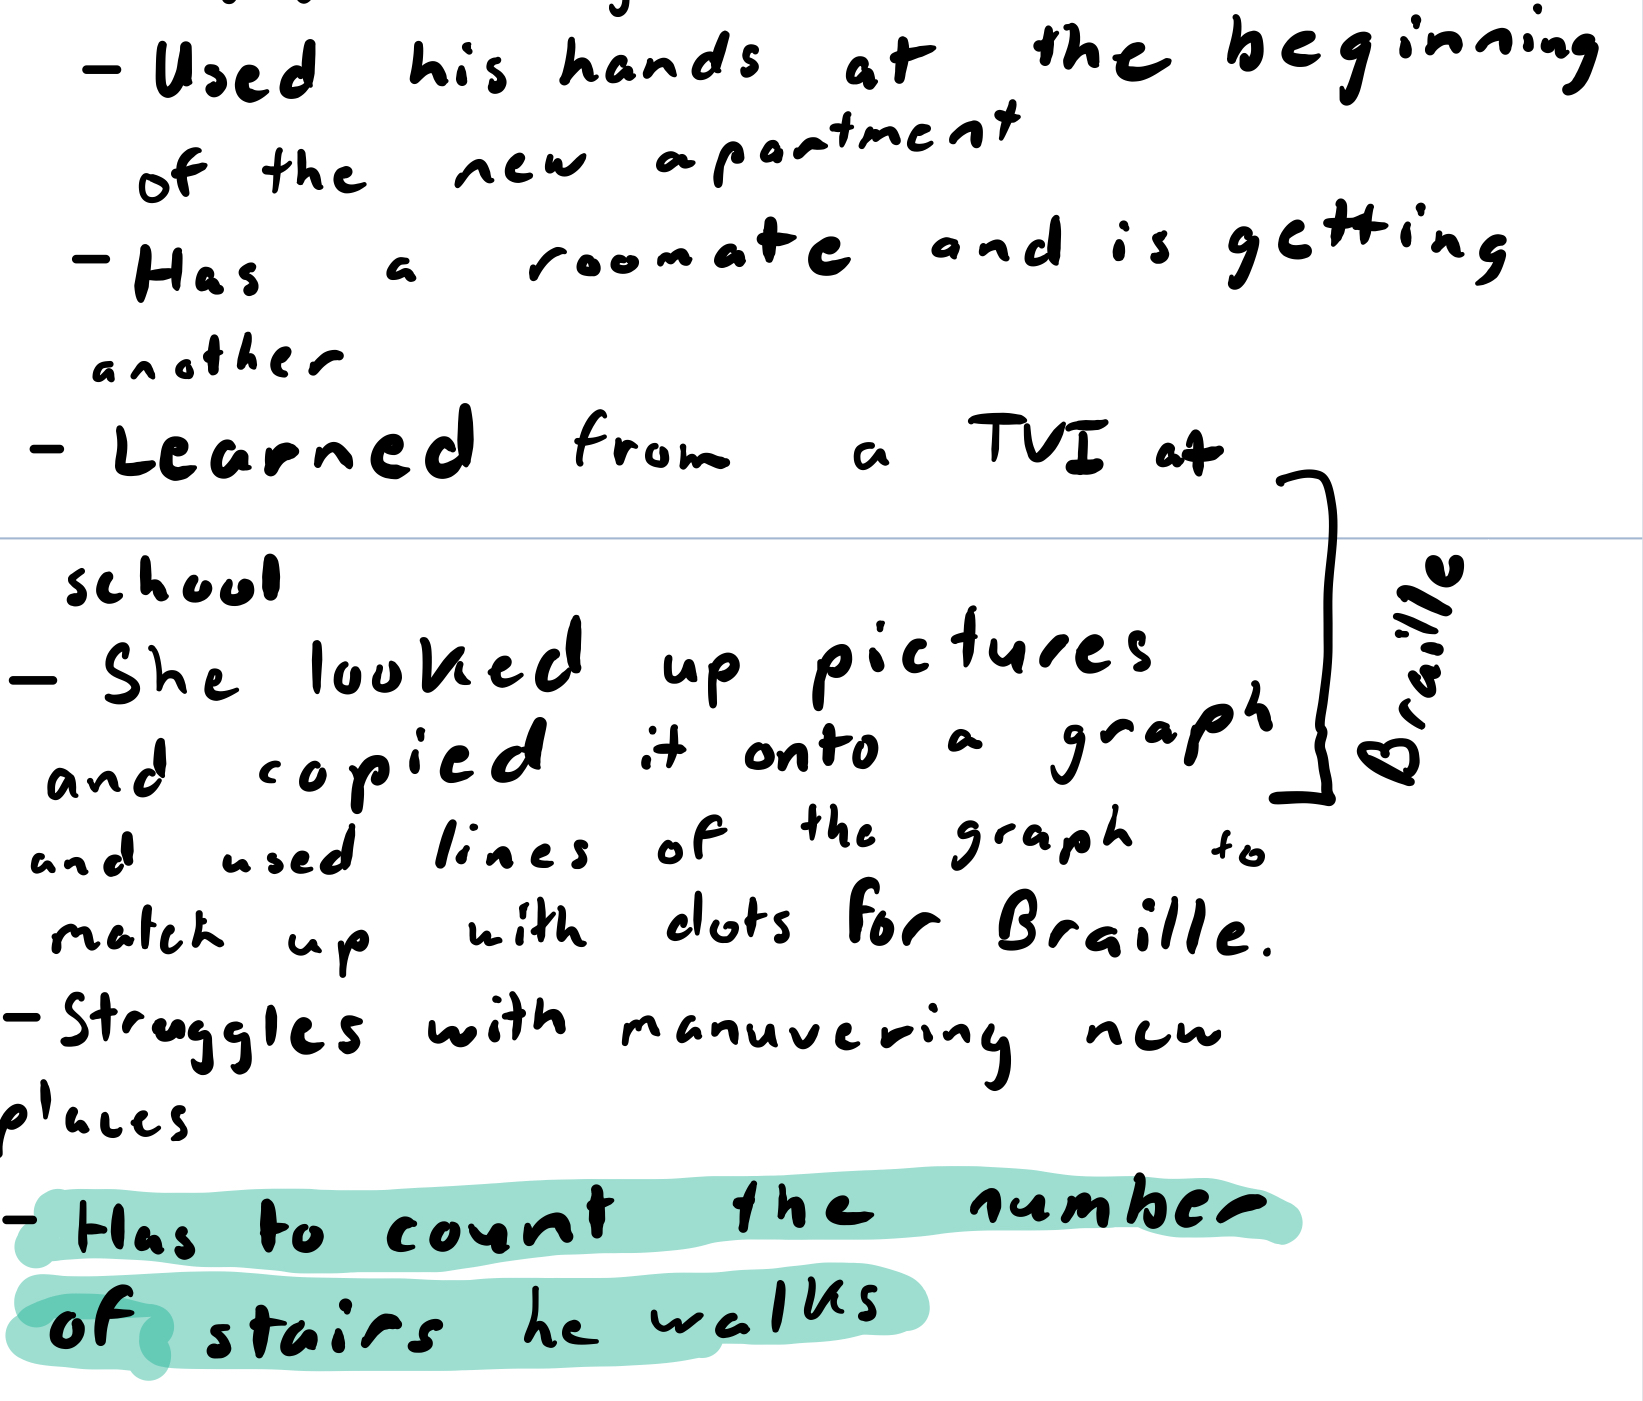 - Used his hands at the beginning
of the new apartment
- Has a roomate and is getting
another
- Learned from a TVI at
school
- She looked up pictures
and copied it onto a graph
and used lines of the graph to
match up with dots for Braille.
Braille
- Struggles with manuvering new
places
- Has to count the number
of stairs he walks